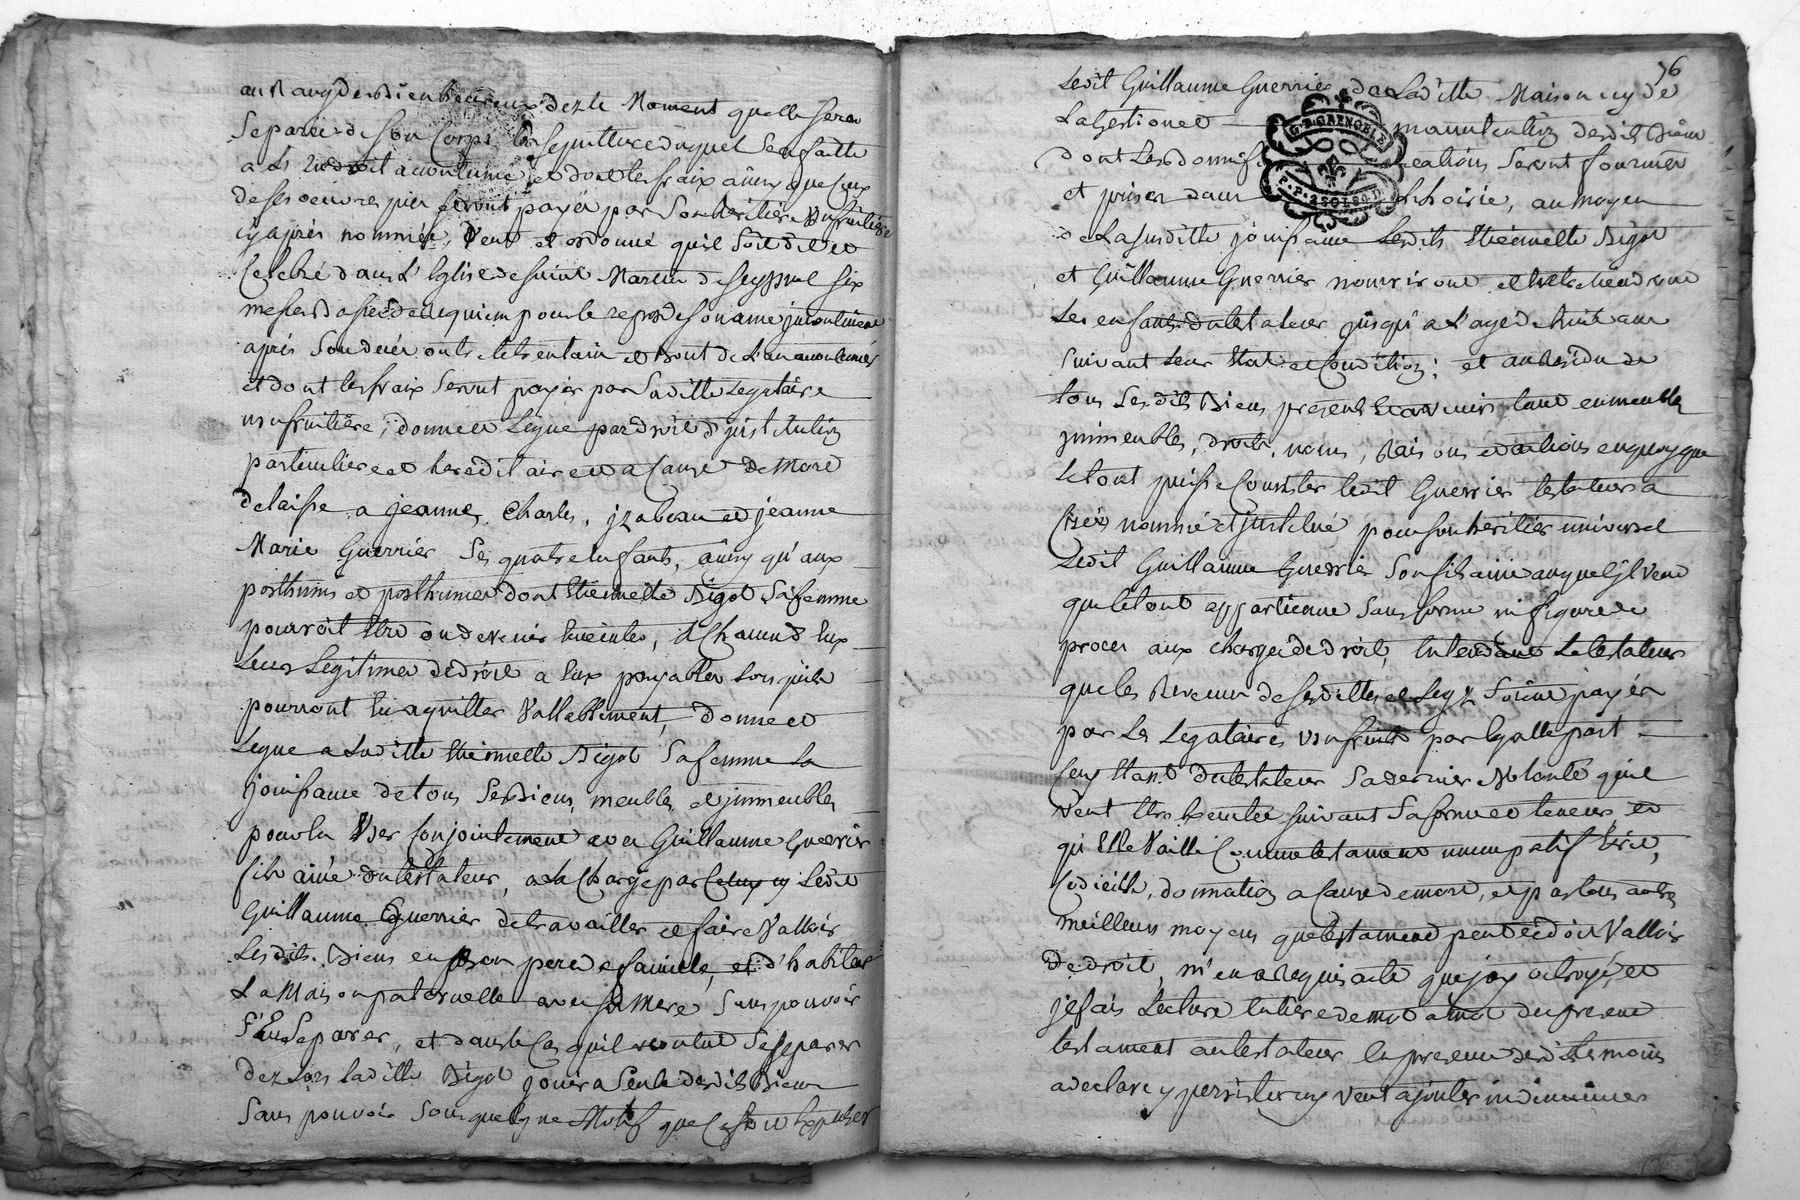 au Rang des Bienheureux dez le Moment quelle sera
Separée de Son Corps la sepulture duquel sera faitte
a les endroit acoutumé et dont les fraix ainsy que ceux
de ses oeuvres pies seront payés par Son heritiere usufruitiere
cy après nommée, Veut et ordonne quil Soit dit et
Celebré dans l'Eglise de Saint Martin de Seyssuel six
messes basses de requiem pour le repos de son ame jncontinent
après Son decès outre les et bout de l'an acoutumés
et dont les fraix Seront payés par Laditte Legataire
usufruitière, donne et Legue par droit d'jnstitution
particuliere et hereditaire et a Cause de Mort
delaisse a jeanne, Charles, jzabeau et jeanne
Marie Guerrier Ses quatre enfants, ainsy qu'aux
posthumes et posthumes dont Etiennette Bigot Sa femme
pourroit Etre ou devenir Enceinte, a Chacun d'Eux
Leurs Legitimes de droit a Eux payables Lors quils
pourront En quitter Vallablement, donne et
Legue a Laditte Etiennette Bigot Sa femme La
jouissance de tous Ses Biens, meubles et jmmeubles
pour En User Conjointement avec Guillaume Guerrier
fils ainé du testateur, a la Charge par Celuy cy Ledit
Guillaume Guerrier de travailler et faire Valloir
Lesdits Biens en bon pere de famille, et d'habiter
La Maison paternelle avec sa Mere, Sans pouvoir
S'En Separer, et dans le Cas quil voulut Se Separer
dez Lors Laditte Bigot jouira Seule desdits Biens
Sans pouvoir Sous quelque Motif que Ce Soit Expulser
76
Ledit Guillaume Guerrier de Laditte Maison cy de
La Gestion et manutention desdits Biens
dont Les bonnifications Seront fournies
et prises dans hoirie, au moyen
de La Susditte jouissance Lesdits Etiennette Bigot
et Guillaume Guerrier nourriront et Entretiendront
Les enfants du testateur jusqu'a L'age de huit ans
suivant Leur Etat et Condition; et au Residu de
tous Sesdits Biens presents et avenir tant en meubles
jmmeubles, droits, noms, Raisons et actions en quoy que
Le tout puisse Consister Ledit Guerrier testateur a
Créé nommé et jnstitué pour son heritier universel
Ledit Guillaume Guerrier Son fils ainé auquel jl Veut
que le tout appartienne Sans forme ni figure de
procès aux Charges de droit, Entendant Le testateur
que les Revenus de Ses dittes et Legs Soient payés
par Les Legataires usufruits par Egalle part
Cecy Etant du testateur Sa derniere Volonté quil
veut Etre Executée suivant Sa forme et teneur, et
qu'Elle Vaille Comme testament nuncupatif Ecrit,
Codicille, donnation a Cause de mort, et par tous autres
meilleurs moyens que testament peut et doit Valloir
de droit, m'en a Requis acte que j'ay octroyé, et
je fais Lecture Entiere de mot a mot du present
testament au testateur En presence desdits temoins
a declaré y persister n'y Veut ajouter ni diminuer
G.D. GRENOBLE
P.P. 2 SOLS 8 D.